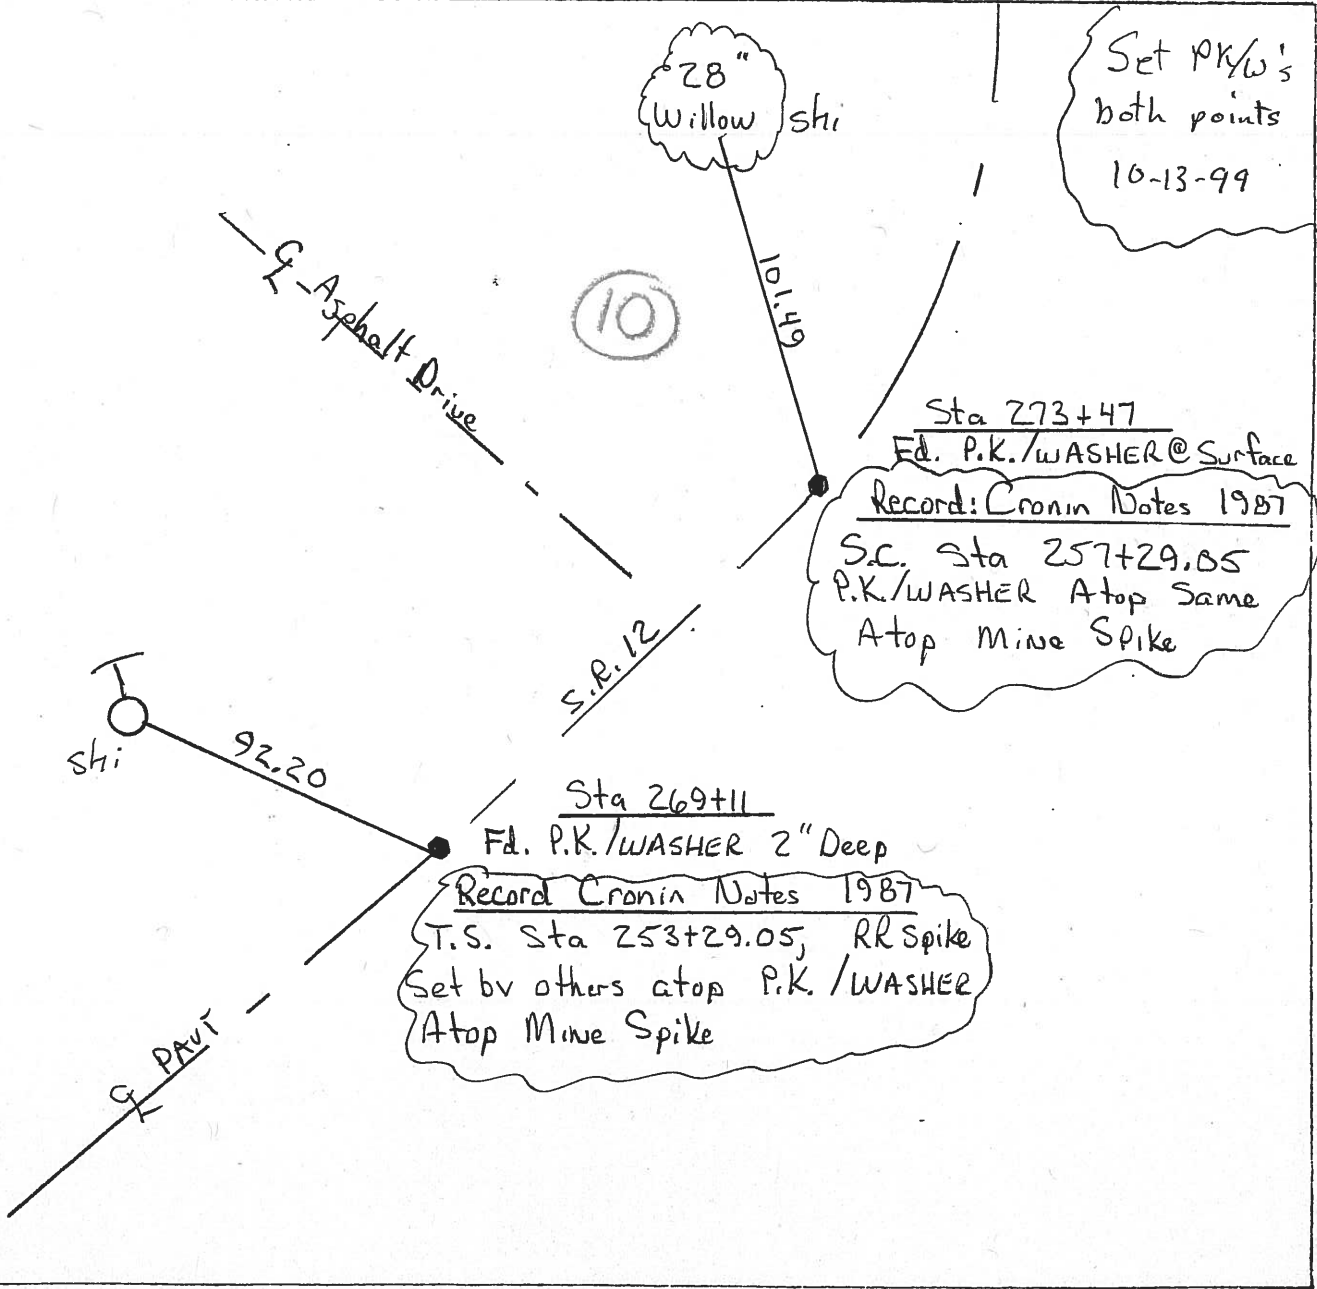 28"
Willow
shi
Set PK/W's
both points
10-13-99
℄ Asphalt Drive
10
101.49
Sta 273+47
Fd. P.K./WASHER @ Surface
Record: Cronin Notes 1987
S.C. Sta 257+29.05
P.K./WASHER Atop Same
Atop Mine Spike
S.R. 12
shi
92.20
Sta 269+11
Fd. P.K./WASHER 2" Deep
Record Cronin Notes 1987
T.S. Sta 253+29.05, RR Spike
Set by others atop P.K./WASHER
Atop Mine Spike
℄ PAVT